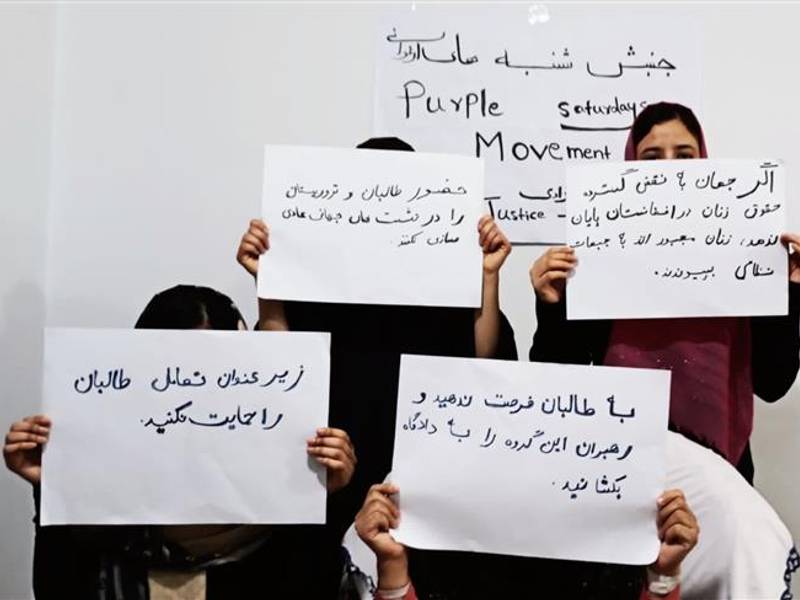 جنبش شنبه های ارغوانی
Purple Saturdays
Movement
Justice
حضور طالبان و تروریستان
را در نشست های جهانی عادی
سازی نکنند.
اگر جهان با نقض گسترده
حقوق زنان در افغانستان پایان
ندهد، زنان مجبور اند با جبهات
نظامی بپیوندند.
زیر عنوان تعامل طالبان
را حمایت نکنید.
به طالبان فرصت ندهید و
رهبران این گروه را به دادگاه
بکشانید.